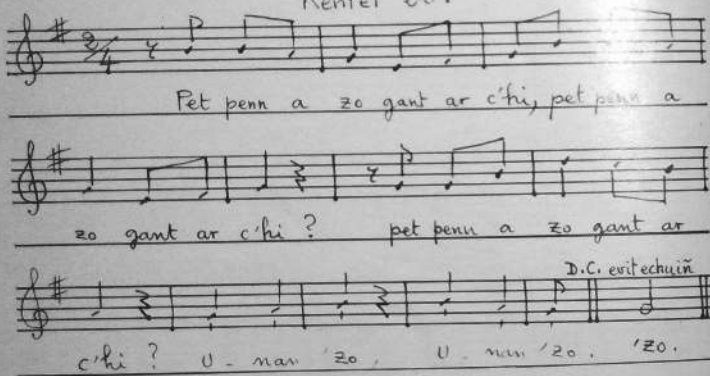 Pet penn a zo gant ar c'hi, pet penn a
zo gant ar c'hi ? pet penn a zo gant ar
D.C. evit echuiñ
c'hi ? U - nan 'zo. U - nan 'zo. 'zo.